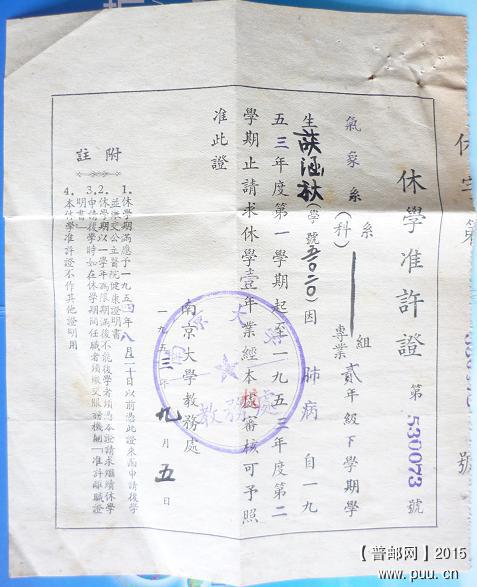 休學准許證 第 530073 號
氣象系 系(科) 組專業 貳年級下學期學
生 薛涵秋 (學號 50020) 因 肺病 自一九
五三年度第一學期起至一九五三年度第二
學期止請求休學壹年業經本校審核可予照
准此證
南京大學教務處
一九五三年九月五日
南京大學
教務處
附註
1.休學期滿應于一九五四年八月二十日以前憑此證來函申請復學
並繳交公立醫院健康證明書
2.休學期以一學年為限期滿後不能復學者須憑本證請求繼續休學
3.申請復學時如在休學期間任職者須繳交服務機關「准許離職證
明書」
4.本休學准許證不作其他證明用
休字第
號
【普邮网】2015
www.puu.cn